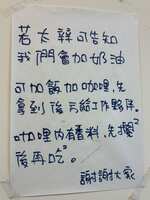 若太辣可告知
我們會加奶油
可加飯加咖哩,先
拿到後方給工作夥伴。
咖哩內有香料,先攪
後再吃。
謝謝大家